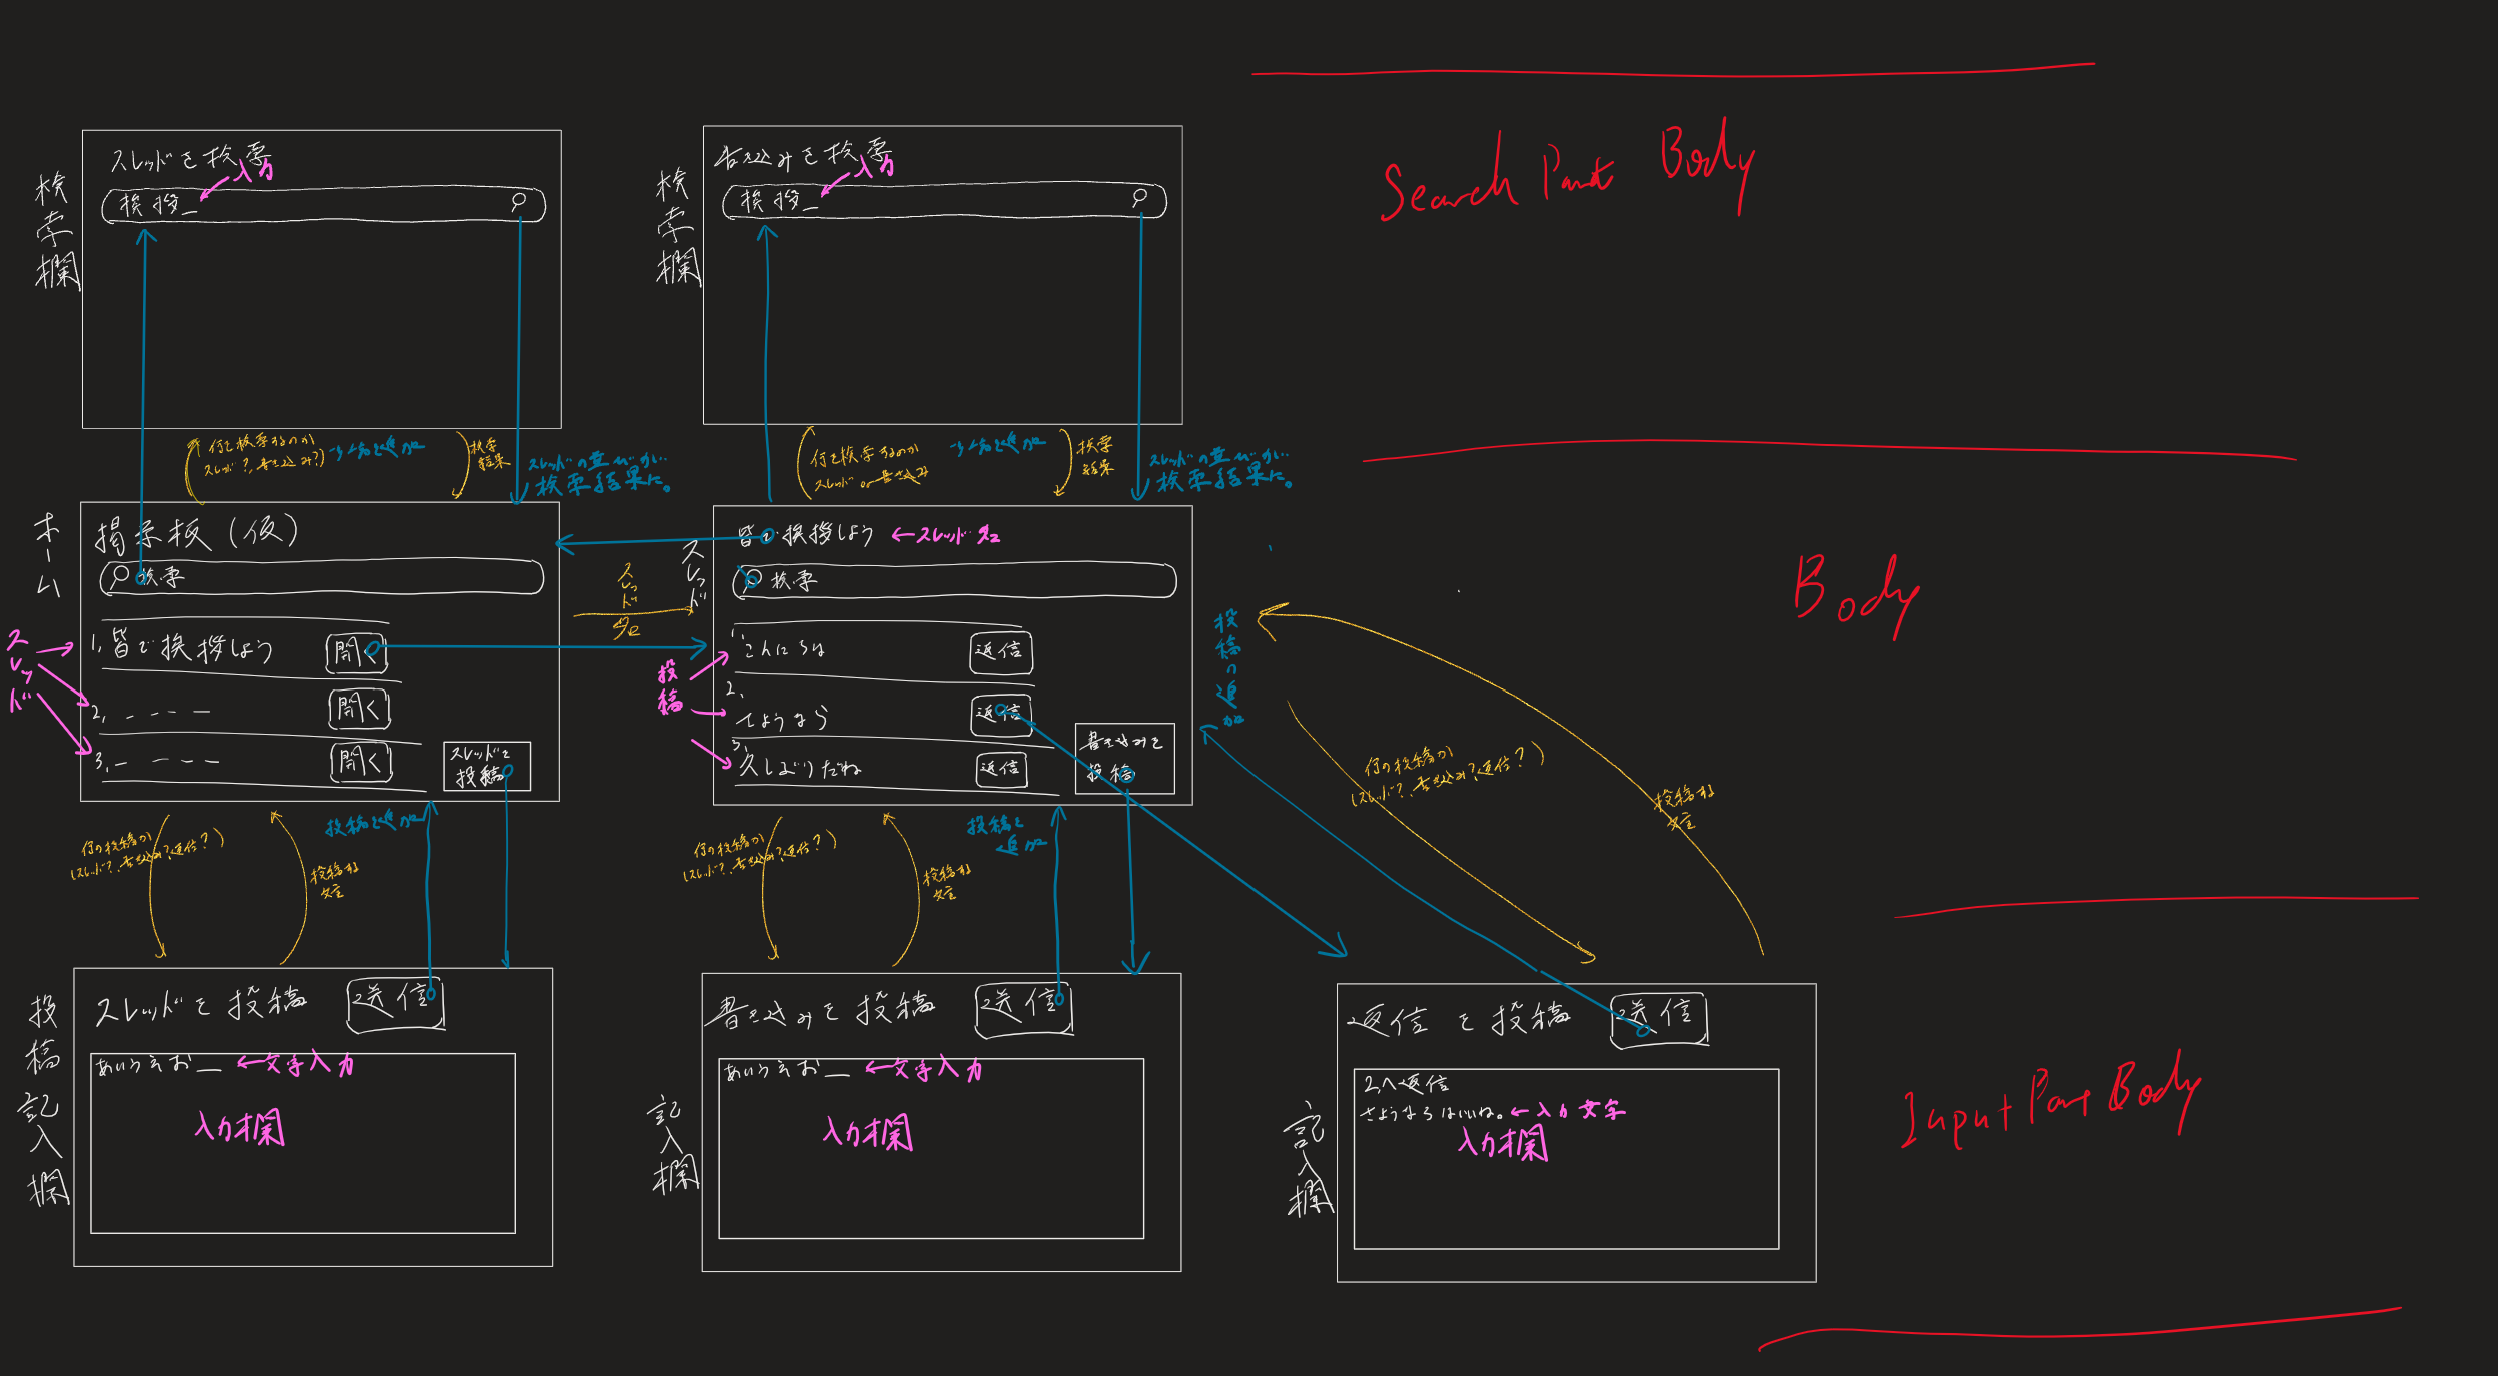 スレッドを検索
入力
挨拶_
検索欄
書き込みを検索
入力
挨拶_
検索欄
Search Part Body
何を検索するのか
スレッド?,書き込み?)
検索
結果
スレッドの並びが
検索結果に。
何を検索するのか
スレッド or 書き込み
検索
結果
スレッドの並びが
検索結果に。
ホーム
掲示板(仮)
検索
スレッド
1, 皆で挨拶しよう
開く
2, - - - -
開く
3, - - - -
開く
スレッドを
投稿
スレッド
名
スレッド
皆で挨拶しよう
←スレッド名
検索
投稿
1, こんにちは
返信
2,
さようなら
返信
3,
久しぶりだね
返信
書き込みを
投稿
投稿の追加
Body
何の投稿か
(スレッド?,書き込み?,返信?)
投稿する
文言
投稿を追加
何の投稿か
(スレッド?,書き込み?,返信?)
投稿する
文言
投稿を
追加
何の投稿か
(スレッド?,書き込み?,返信?)
投稿する
文言
投稿記入欄
スレッドを投稿
送信
あいうえお_ ←文字入力
入力欄
記入欄
書き込みを投稿
送信
あいうえお_ ←文字入力
入力欄
記入欄
返信を投稿
送信
2,へ返信
さようならはいいね。←入力文字
入力欄
Input Part Body